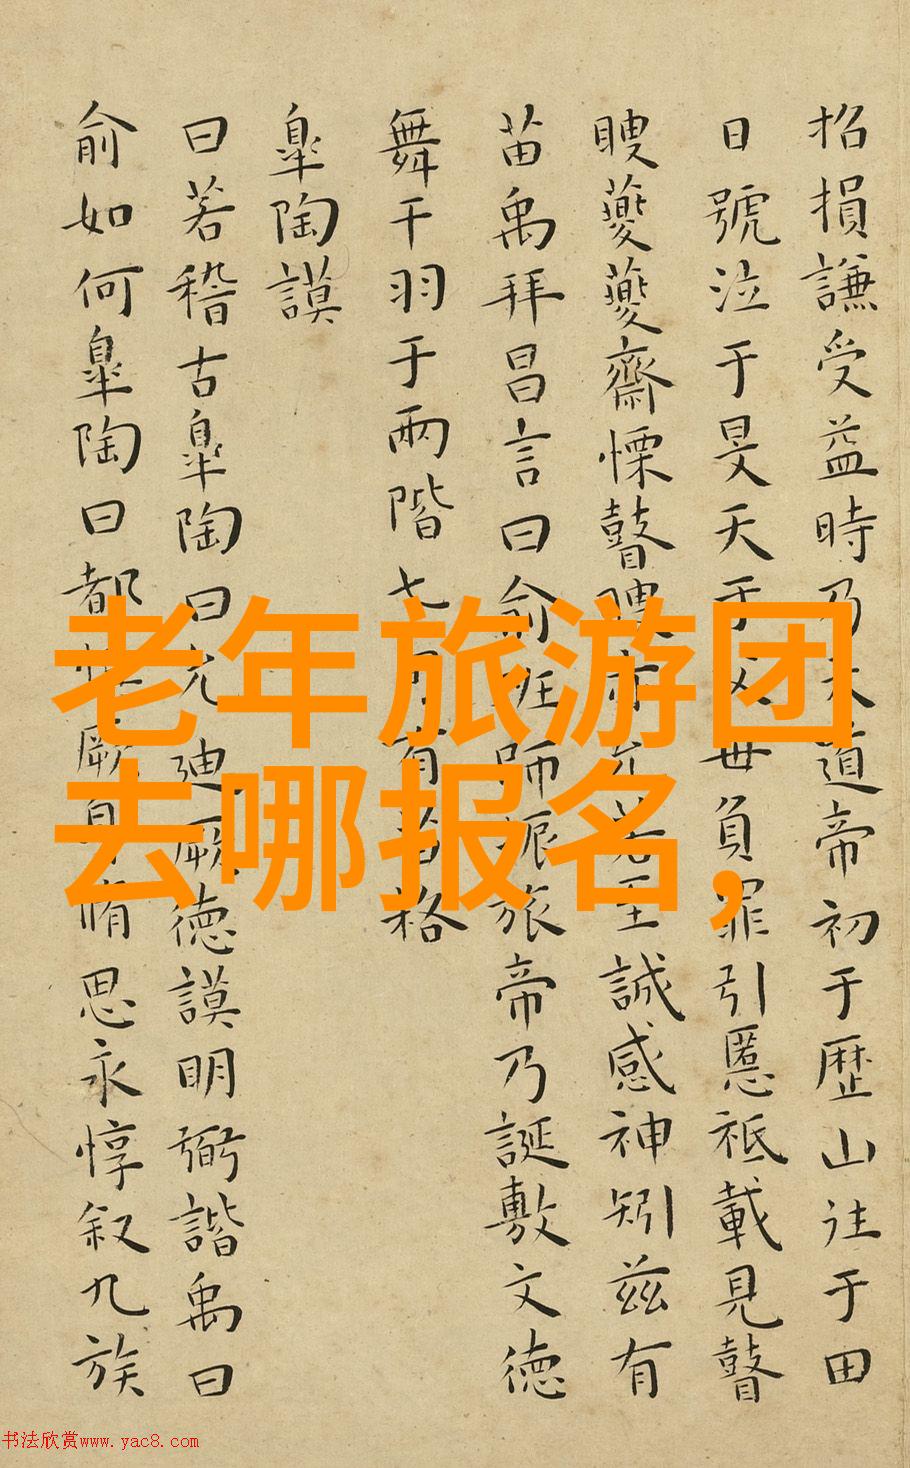 招損謙受益時乃天道帝初于歷山往于田
日號泣于旻天于父母負罪引慝祗載見瞽
瞍夔夔齋慄瞽瞍亦允若至誠感神矧兹有
苗禹拜昌言曰俞班師振旅帝乃誕敷文德
舞干羽于兩階七旬有苗格
皐陶謨
曰若稽古皐陶曰允迪厥德謨明弼諧禹曰
俞如何皐陶曰都慎厥身脩思永惇叙九族
老年旅游团
去哪报名,
书法欣赏www.yac8.com